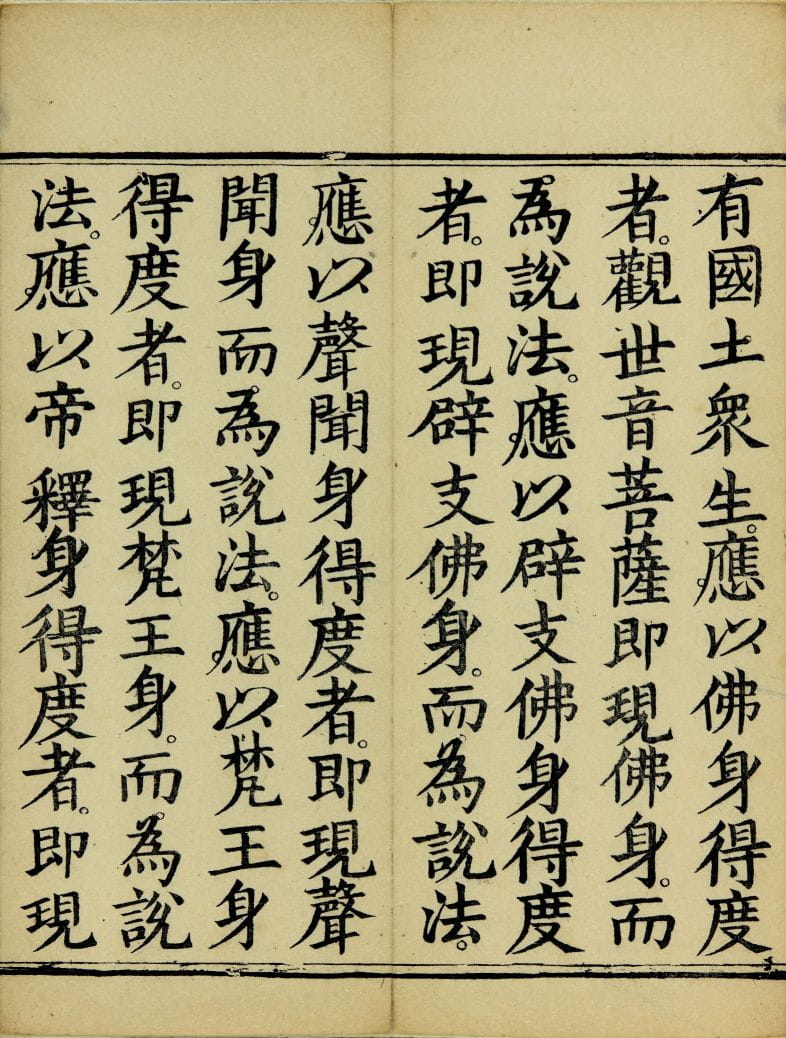 有國土衆生。應以佛身得度
者。觀世音菩薩即現佛身。而
爲說法。應以辟支佛身得度
者。即現辟支佛身。而為說法。
應以聲聞身得度者。即現聲
聞身而為說法。應以梵王身
得度者。即現梵王身。而為說
法。應以帝釋身得度者。即現